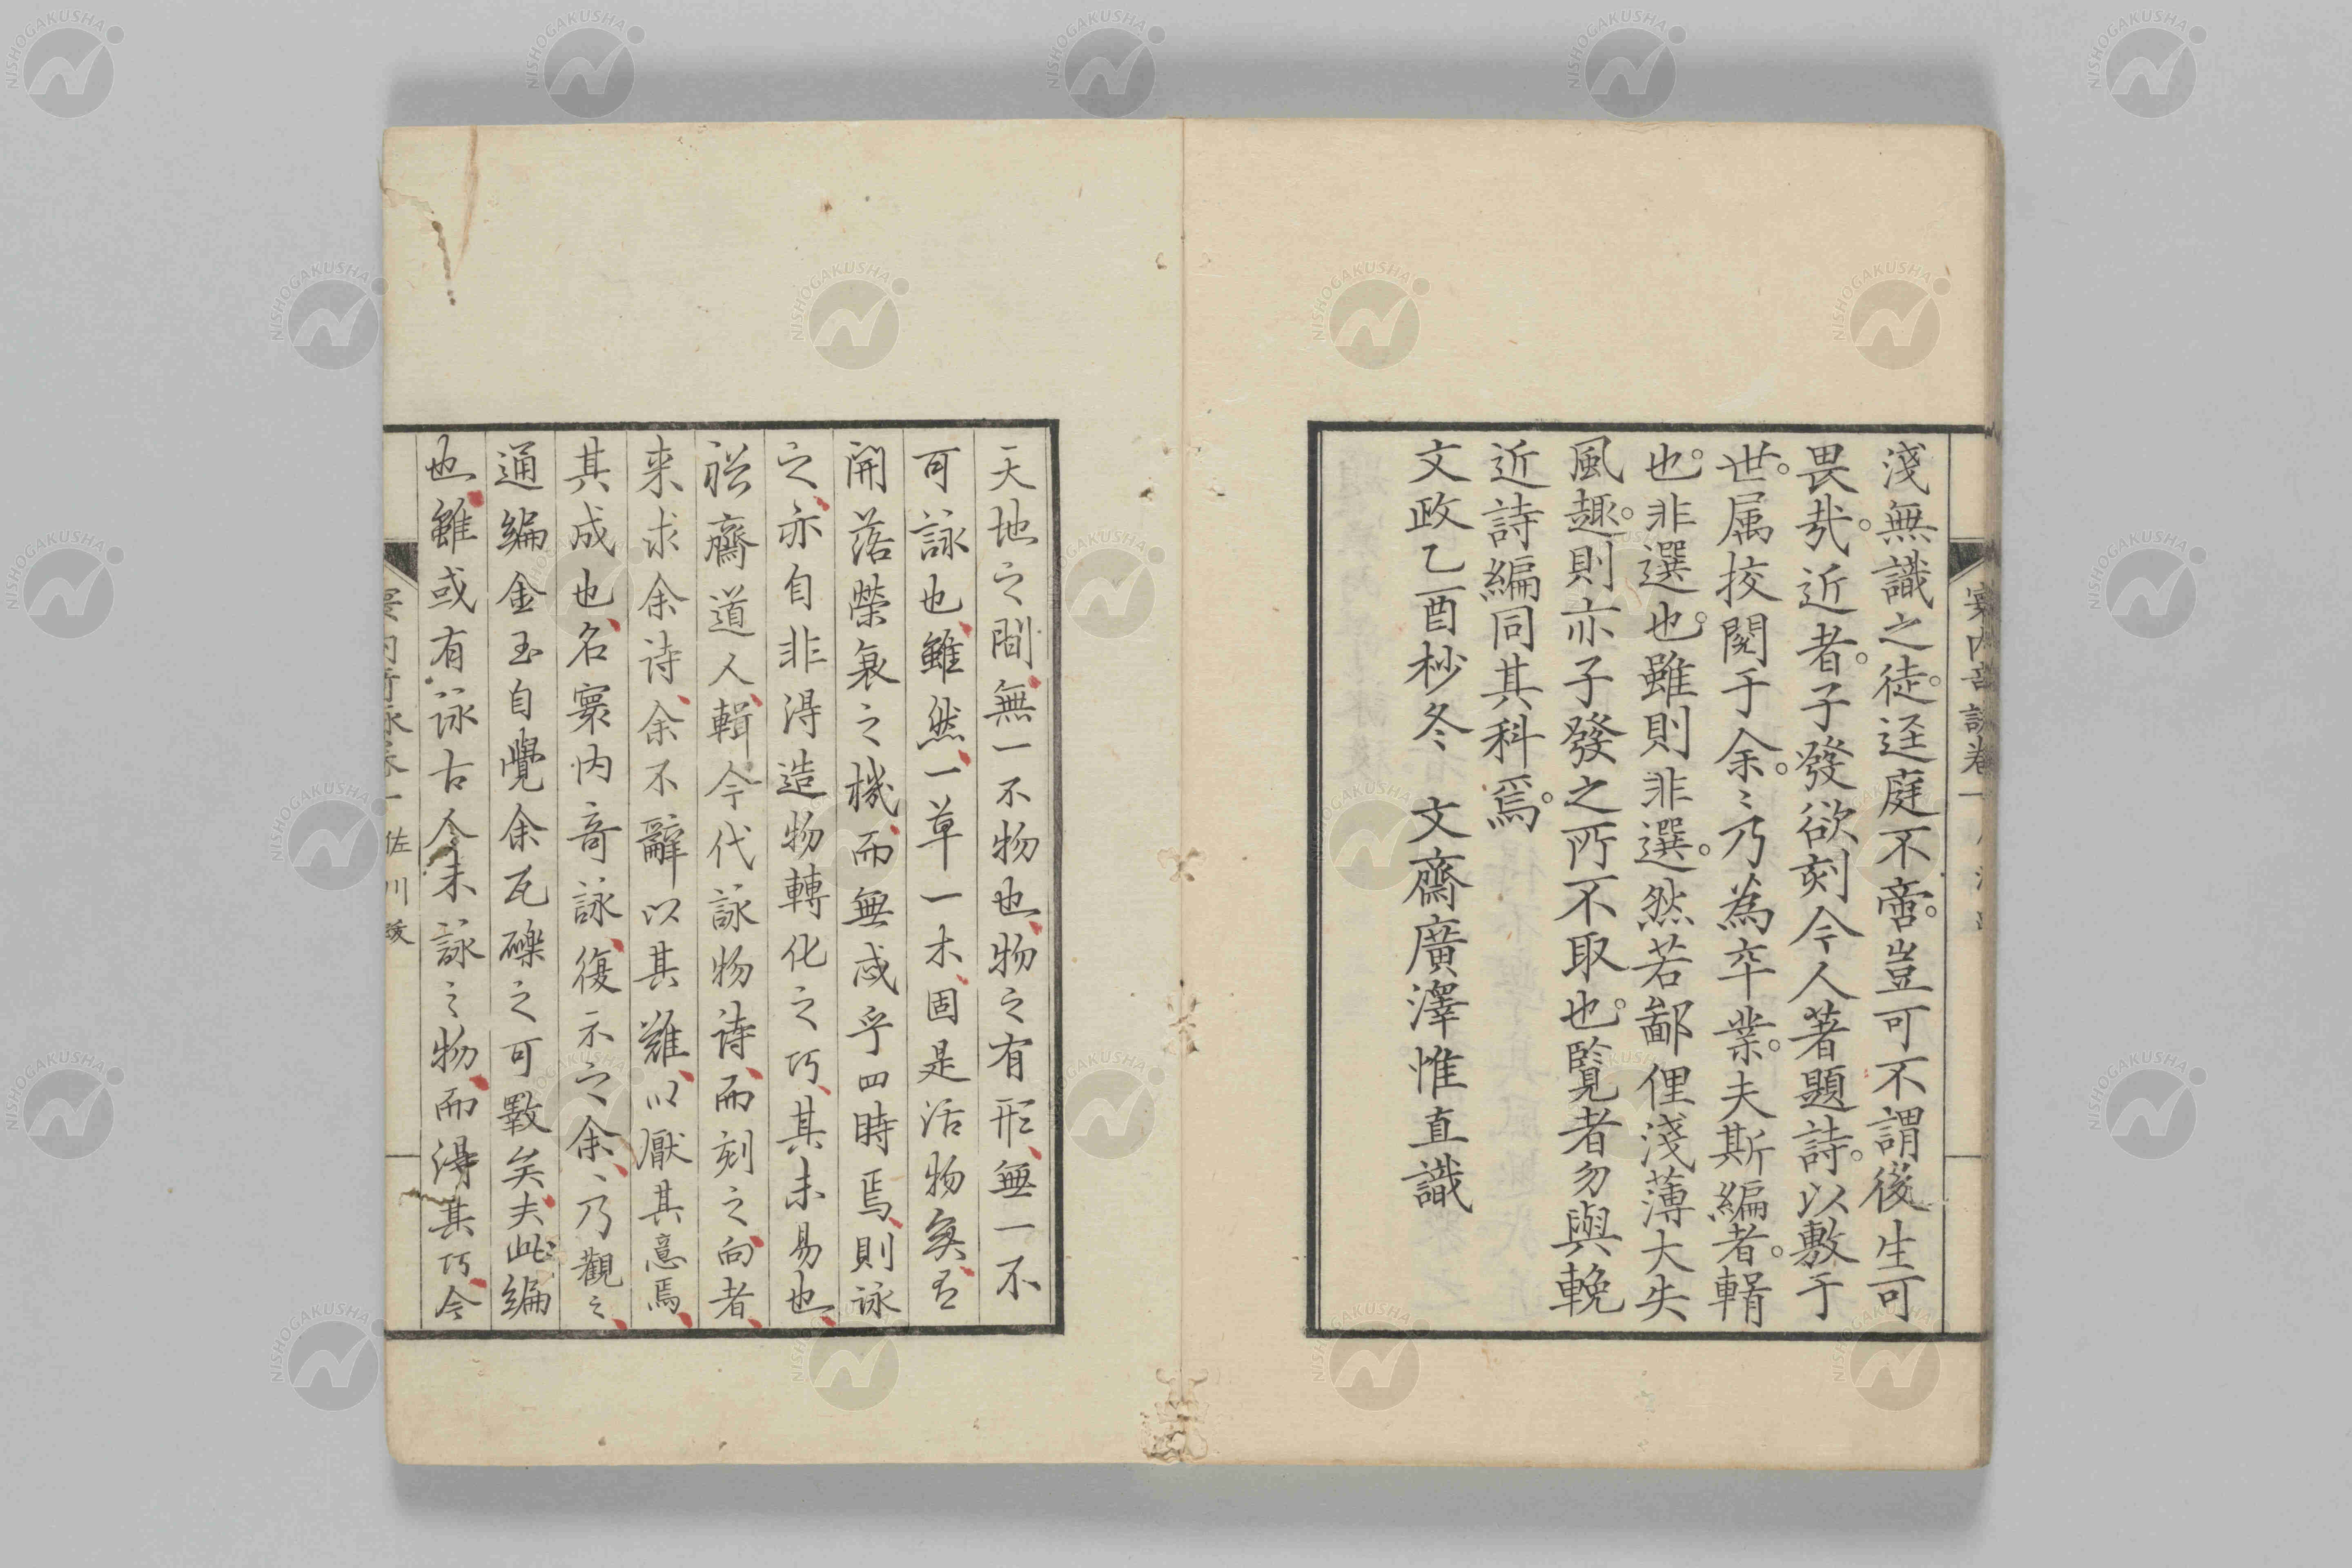 淺無識之徒。逕庭不啻。豈可不謂後生可
畏哉。近者。子發欲刻今人著題詩。以敷于
世。属挍閱于余。〻乃為卒業。夫斯編者。輯
也。非選也。雖則非選。然若鄙俚淺薄大失
風趣。則亦子發之所不取也。覧者勿與輓
近詩編同其科焉。
文政乙酉杪冬 文齋廣澤惟直識
天地之間、無一不物也、物之有形、無一不
可詠也、雖然、一草一木、固是活物矣、至
開落榮衰之機、而無感乎四時焉、則詠
之、亦自非得造物轉化之巧、其未易也、
裕齋道人、輯今代詠物詩、而刻之、向者、
来求余詩、余不辭以其難、以厭其意焉、
其成也、名寰内奇詠、復示之余、〻乃觀之、
通編金玉自覺余瓦礫之可斁矣、夫此編
也、雖或有詠古今未詠之物、而得其巧、今